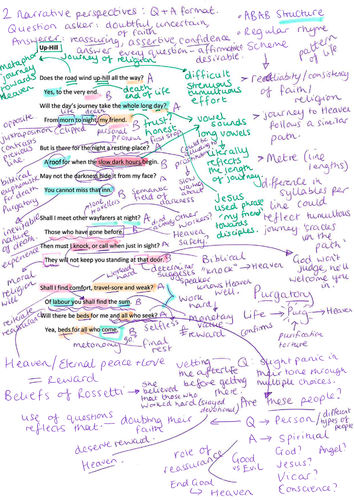 2 narrative perspectives: Q + A format.
Question asker: doubtful, uncertain,
of faith
Answerer: reassuring, assertive, confidence
answer every question - affirmative
desirable.
→ ABAB Structure
→ Regular rhyme
Scheme
pattern of
life
→ reliability/consistency
of faith/
religion
→ journey to Heaven
follows a similar
path.
→ Metre (line
lengths)
Difference in
syllables per
line could
reflect tumultuous
journey 'cracks
in the
path'
metaphor
journey
towards
Heaven
Up-Hill
Journey of religion
Does the road wind up-hill all the way? A
Yes, to the very end. B
death
end of life
Will the day's journey take the whole long day? A
From morn to night, my friend. B
clipped
personal
pronoun
difficult
strenuous
tumultuous
effort
trust
honest
→ vowel
sounds
long vowels
Literally
reflects
the length
of journey.
Jesus
used phrase
'my friend'
towards
disciples.
opposite
juxtaposition
contrasts
previous
line.
But is there for the night a resting-place? A
A roof for when the slow dark hours begin. B
May not the darkness hide it from my face? A
You cannot miss that inn. B
biblical
euphemism
for death
Purgatory
inevitable
nature of death
experience
Shall I meet other wayfarers at night? A
Those who have gone before. B
Then must I knock, or call when just in sight? A
They will not keep you standing at that door. B
Heaven
safety.
Biblical
"knock" → Heaven
God won't
judge, he'll
welcome you
in.
moral
religion
well
determiner
suggests
speaker
knows
Heaven well.
Shall I find comfort, travel-sore and weak? A
Of labour you shall find the sum. B
Will there be beds for me and all who seek? A
Yea, beds for all who come. B
work
hard
monetary
value
reward
selfless
metonomy
final
rest
Purgatory
Life → Purg → Heaven
confirms
purification
torture
Heaven/Eternal peace + love
= Reward
Beliefs of Rossetti
She
believed
that those who
worked hard (stayed
devotional)
vetting
the afterlife
before getting
there.
Q slight panic in
their tone through
multiple choices.
Are these people?
Q → Person
different
types of
people
A → Spiritual
God? Angel?
Jesus?
Vicar?
Conscience?
use of questions
reflects that
doubting their
faith
deserve reward.
Heaven.
role of
reassurance
Good
vs Evil
End Goal
→ Heaven